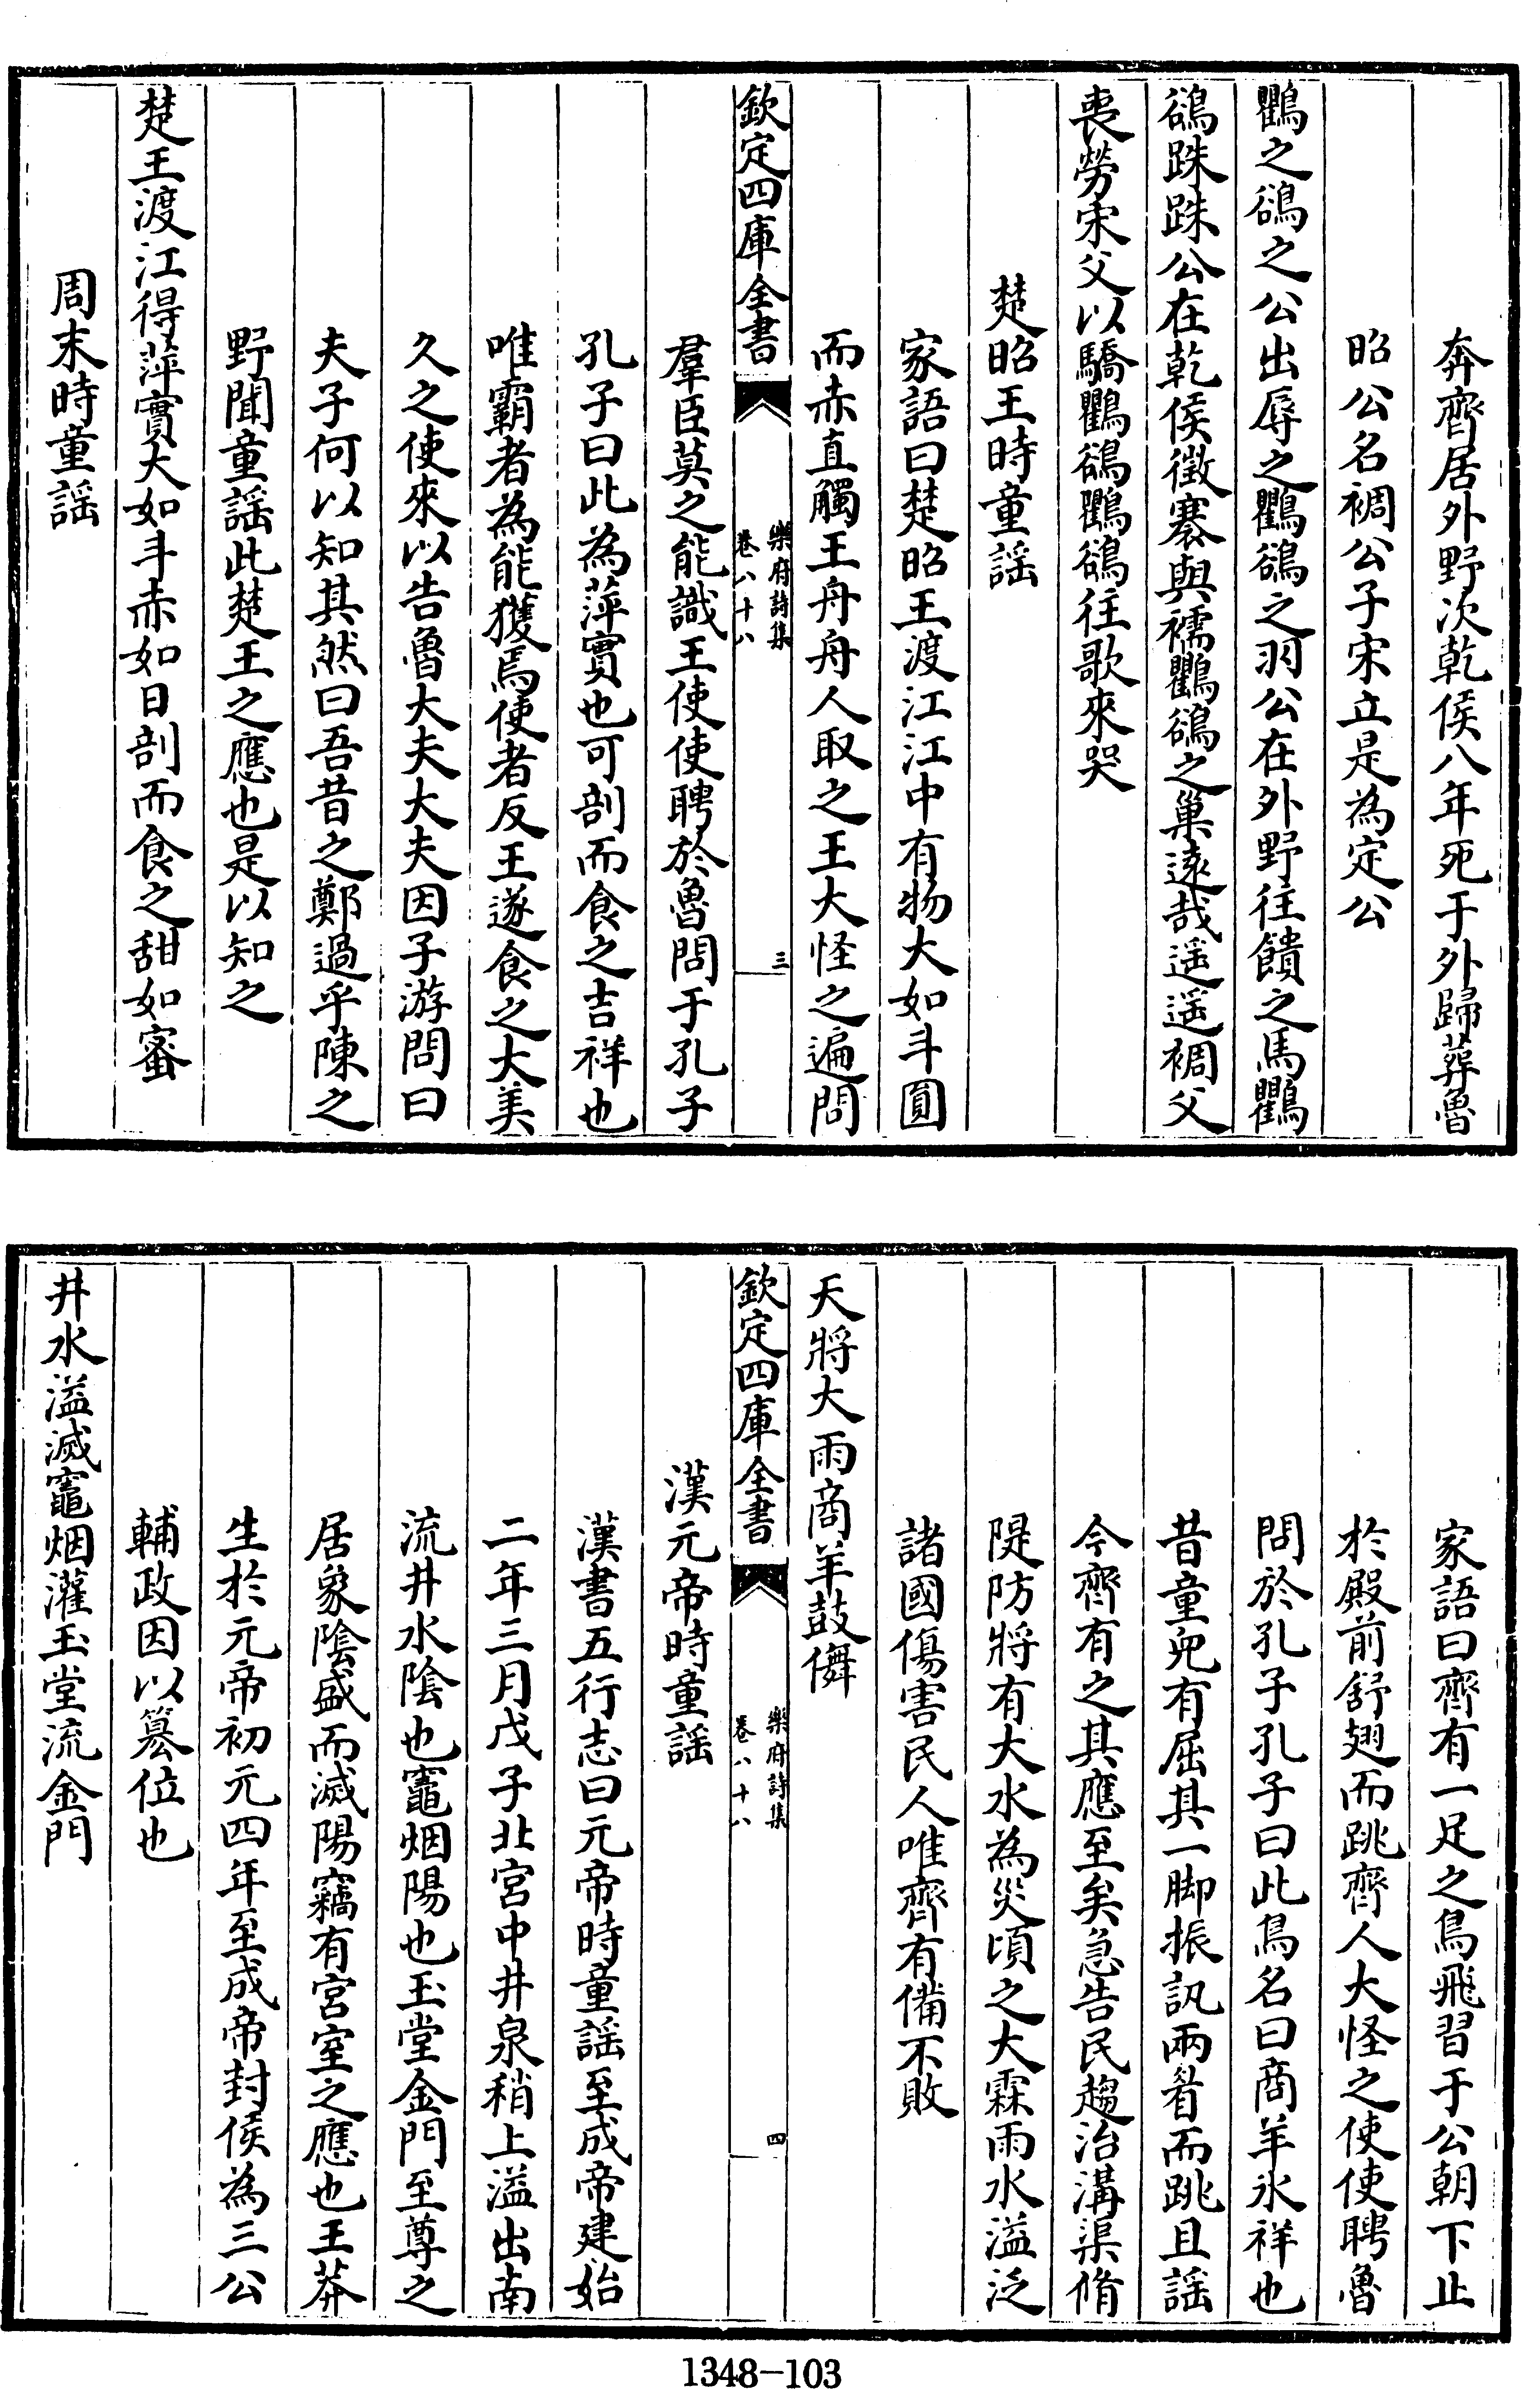 奔齊居外野次乾侯八年死于外歸葬魯
昭公名裯公子宋立是為定公
鸜之鵒之公出辱之鸜鵒之羽公在外野往饋之馬鸜
鵒跦跦公在乾侯徵褰與襦鸜鵒之巢遠哉遥遥裯父
喪勞宋父以驕鸜鵒鸜鵒往歌來哭
楚昭王時童謡
家語曰楚昭王渡江江中有物大如斗圓
而赤直觸王舟舟人取之王大怪之遍問
欽定四庫全書
樂府詩集
卷八十八
三
羣臣莫之能識王使使聘於魯問于孔子
孔子曰此為萍實也可剖而食之吉祥也
唯霸者為能獲焉使者反王遂食之大美
久之使來以告魯大夫大夫因子游問曰
夫子何以知其然曰吾昔之鄭過乎陳之
野聞童謡此楚王之應也是以知之
楚王渡江得萍實大如斗赤如日剖而食之甜如蜜
周末時童謡
家語曰齊有一足之鳥飛習于公朝下止
於殿前舒翅而跳齊人大怪之使使聘魯
問於孔子孔子曰此鳥名曰商羊水祥也
昔童兒有屈其一脚振訊兩肴而跳且謡
今齊有之其應至矣急告民趨治溝渠脩
隄防將有大水為災頃之大霖雨水溢泛
諸國傷害民人唯齊有備不敗
天將大雨商羊鼓儛
欽定四庫全書
樂府詩集
卷八十八
四
漢元帝時童謡
漢書五行志曰元帝時童謡至成帝建始
二年三月戊子北宮中井泉稍上溢出南
流井水陰也竈烟陽也玉堂金門至尊之
居象陰盛而滅陽竊有宮室之應也王莽
生於元帝初元四年至成帝封侯為三公
輔政因以篡位也
井水溢滅竈烟灌玉堂流金門
1348-103